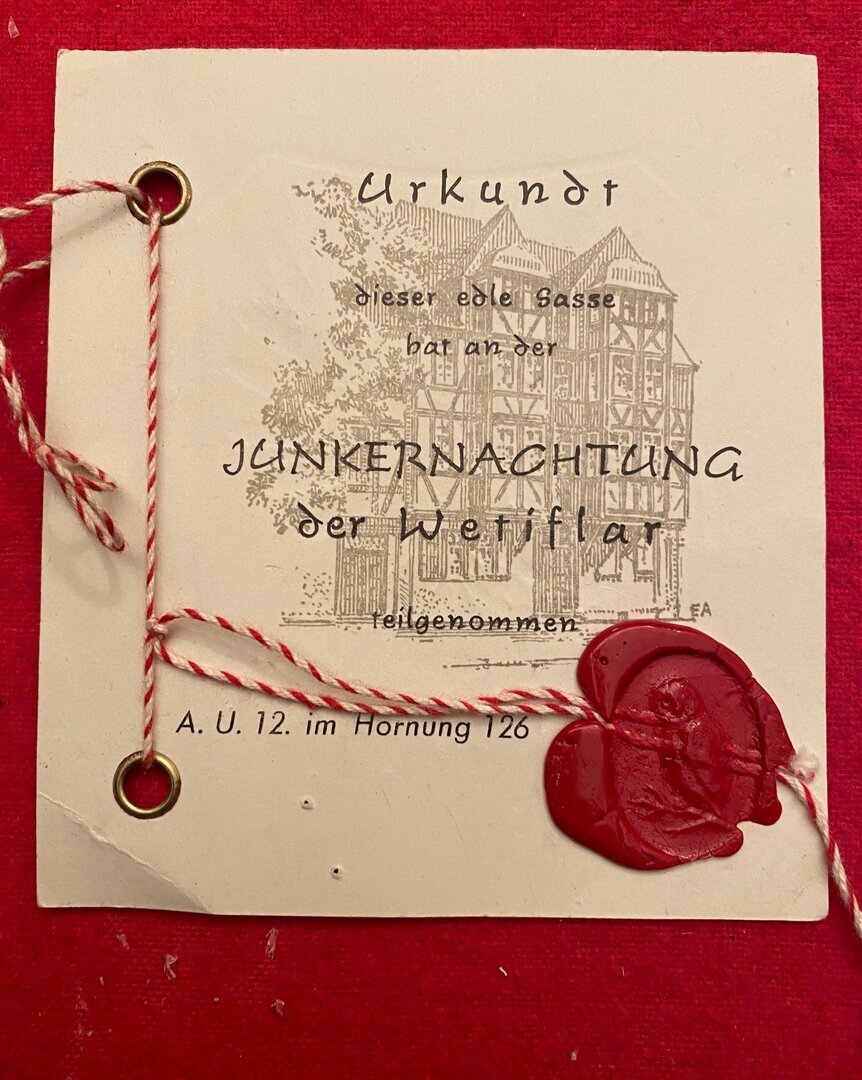 Urkundt
dieser edle Sasse
hat an der
JUNKERNACHTUNG
der Wetiflar
teilgenommen
EA
A. U. 12. im Hornung 126